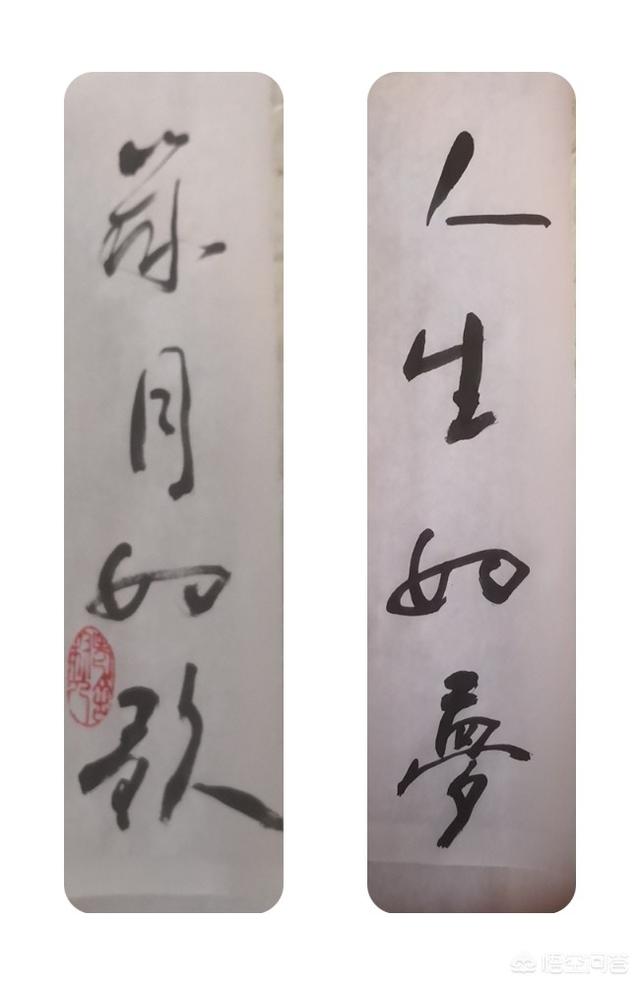 人生如夢
岁月如歌
悟空问答